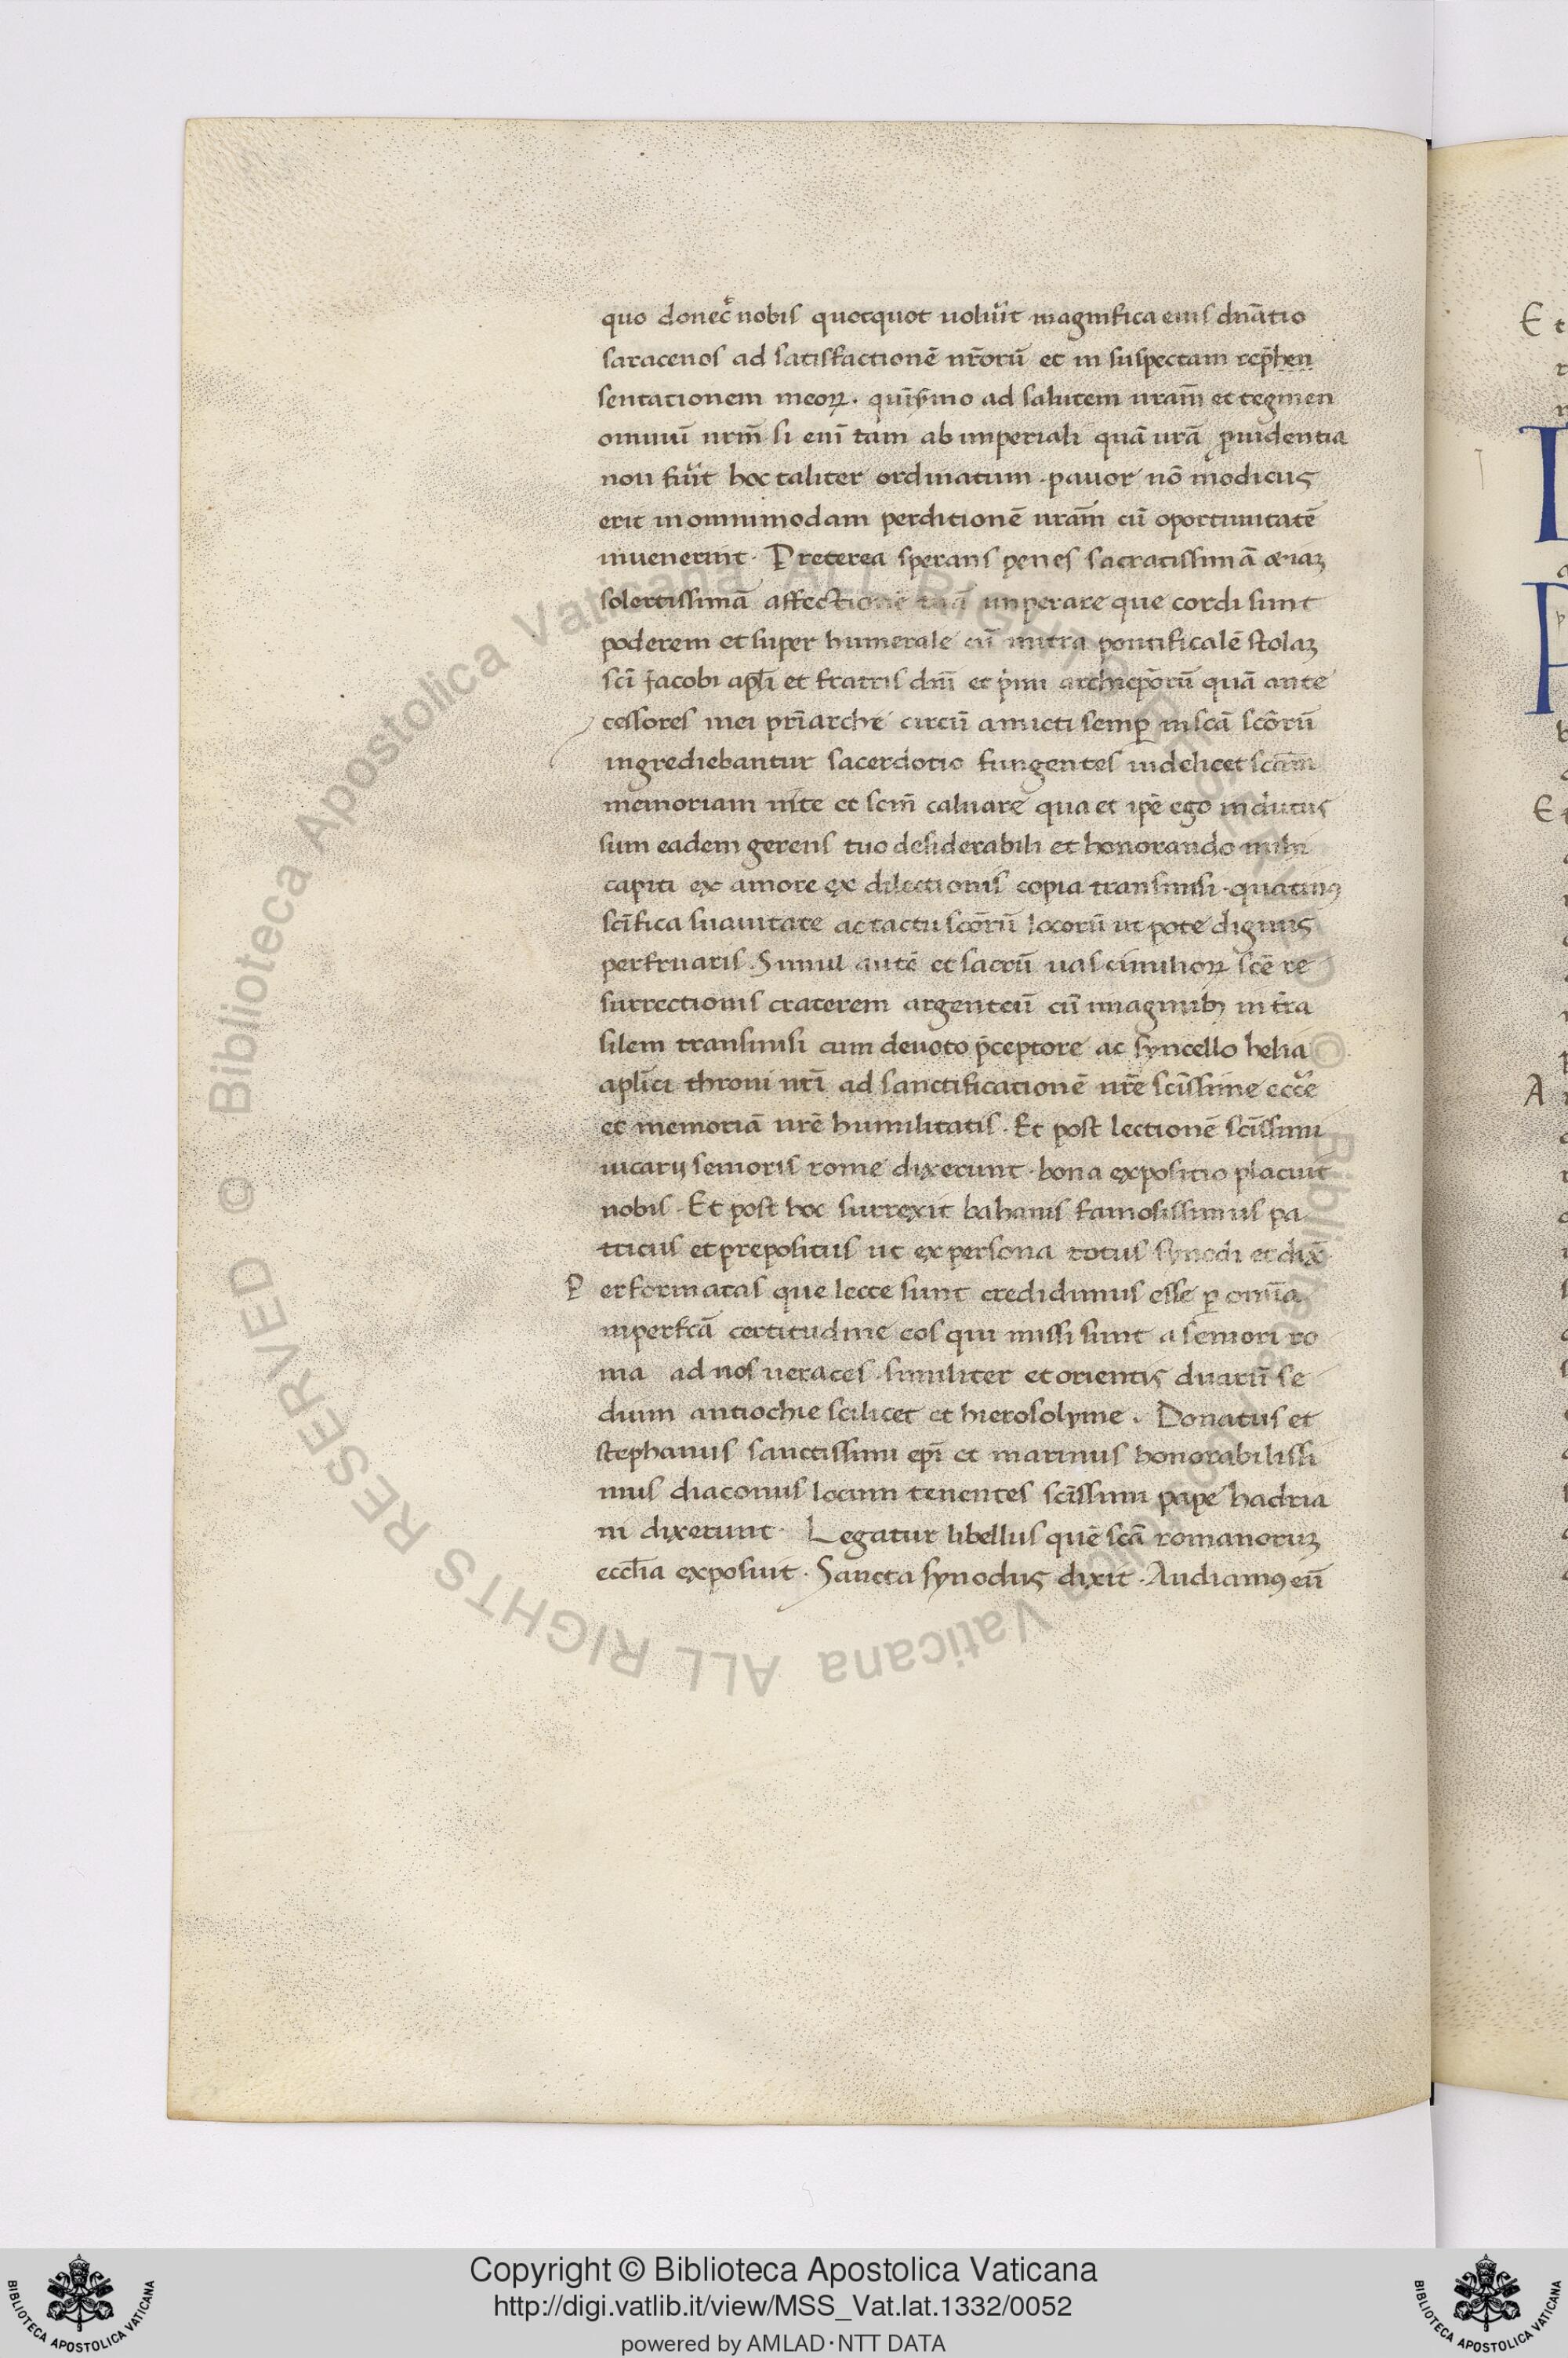 quo donec̄ nobis quotquot uolūit magnifica eius dn̄atio
saracenos ad satisfactionē nr̄orū et in suspectam rep̄hen
sentationem meoꝝ. quīȳmo ad salutem uram̄ et tegmen
omniū urm̄ si eni tam ab imperiali quā urā ꝓuidentia
non fūit hoc taliter ordinatum . pauor nō modicus
erit in omnimodam perditionē uram̄ cū oportunitatē
inuenerint . Preterea sperans penes sacratissimā
solertissimā affectionē tuā imperare que cordi sunt
poderem et super humerale cū mitra pontificalē stolaꝫ
sci Jacobi apl̄i et fratris dn̄i et p̄mi archiep̄orū quā ante
cessores mei pr̄iarche circū amicti semꝑ in scā scōrū
ingrediebantur sacerdotio fungentes uidelicet scām
memoriam uite et scm̄ caluare qua et ip̄e ego indutus
sum eadem gerens tuo desiderabili et honorando mihi
capiti ex amore ex dilectionis copia transmisi . quatinꝰ
scīfica suauitate ac tactu scōrū locorū ut pote dignus
perfruaris . Simul autē et sacrū uas cimilioꝝ scē re
surrectionis craterem argenteū cū imaginibꝫ in tra
silem transmisi cum deuoto p̄ceptore ac syncello helia
aplīci throni nr̄i ad sanctificationē ur̄e scīssime eccē
et memoriā urē humilitatis . Et post lectionē scīssimi
uicarij senioris rome dixerunt . bona expositio placuit
nobis . Et post hoc surrexit bahanis famosissimus pa
tricius et prepositus ut ex persona totius synodi et dix̄
P erformatas que lecte sunt credidimus esse ꝑ omīa
inperfcā certitudine eos qui missi sunt a seniori ro
ma ad nos ueraces . similiter et orientis duarū se
dium antiochie scilicet et hierosolyme . Donatus et
stephanus sanctissimi ep̄i et marinus honorabilissi
mus diaconus locum tenentes scīssimi pape hadria
ni dixerunt . Legatur libellus quē scā romanoruꝫ
eccl̄ia exposuit . Sancta synodus dixit . Audiamꝰ eū
E t
I
P
E t
A
© Biblioteca Apostolica Vaticana ALL RIGHTS RESERVED © Biblioteca Apostolica Vaticana ALL RIGHTS RESERVED
Copyright © Biblioteca Apostolica Vaticana
http://digi.vatlib.it/view/MSS_Vat.lat.1332/0052
powered by AMLAD·NTT DATA
BIBLIOTECA APOSTOLICA VATICANA
BIBLIOTECA APOSTOLICA VATICANA